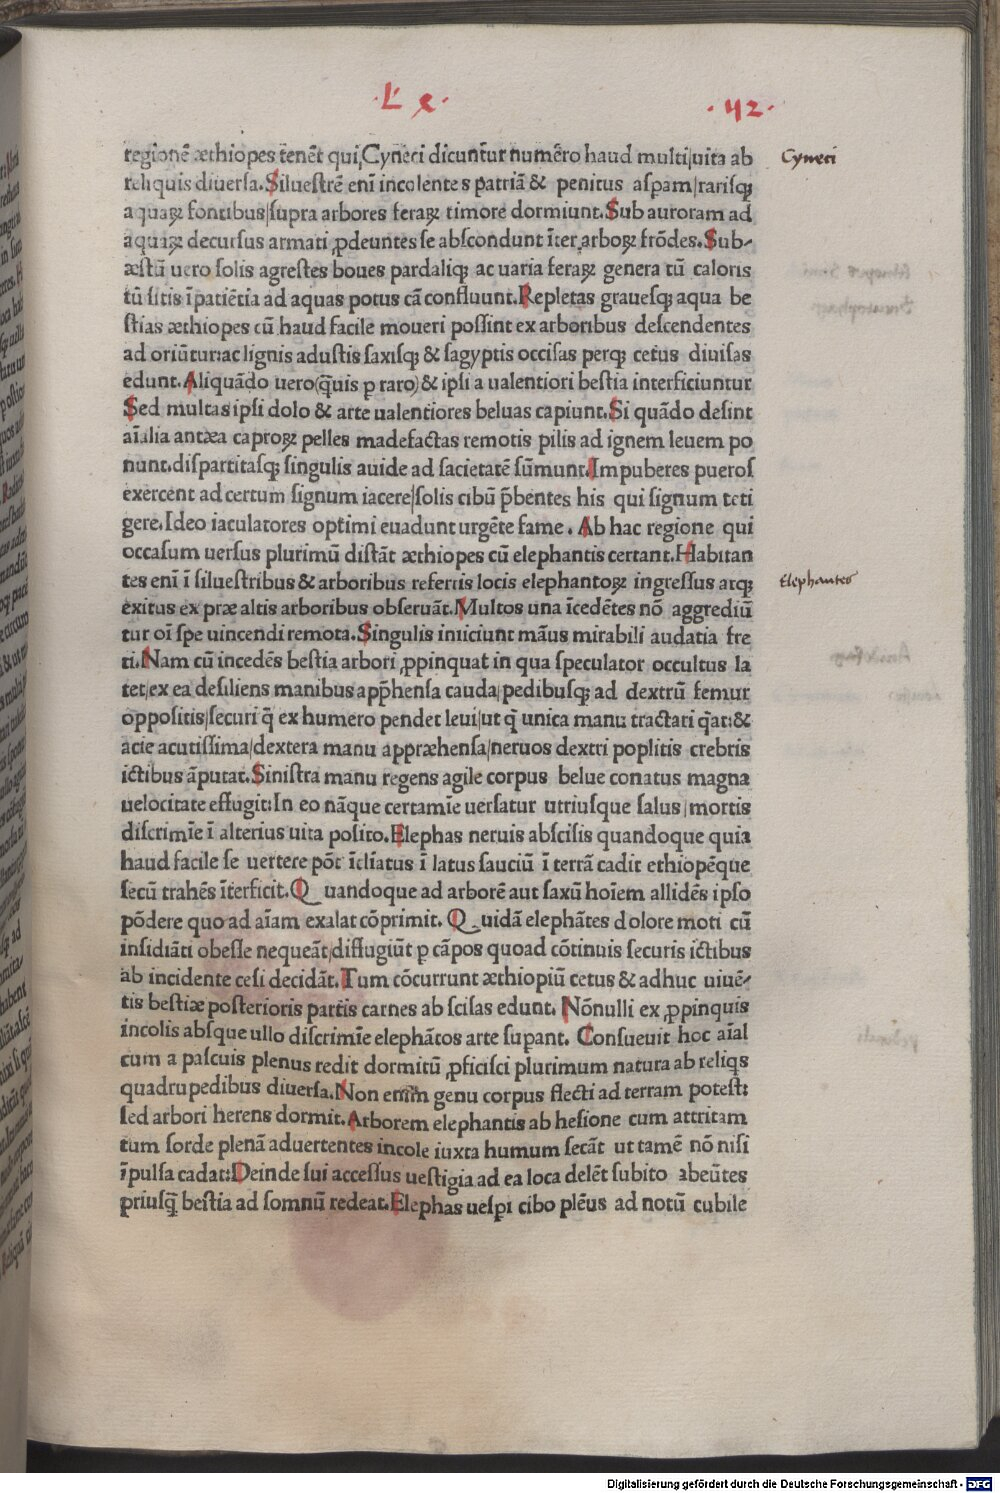 ·L· x·
·42·
regionē æthiopes tenēt qui,Cyneci dicunt̃ur numẽro haud multi|uita ab
Cyneci
reliquis diuersa.Siluestrē enī incolentes patriā & penitus aspam|rarisq;
aquaꝝ fontibus|supra arbores feraꝝ timore dormiunt.Sub auroram ad
aquaꝝ decursus armati ꝓdeuntes se abscondunt īter arboꝝ frōdes.Sub-
æstū uero solis agrestes boues pardaliq; ac uaria feraꝝ genera tū caloris
tū sitis īpatiētia ad aquas potus cā confluunt.Repletas grauesq; aqua be
stias æthiopes cū haud facile moueri possint ex arboribus descendentes
ad oriūtur:ac lignis adustis saxisq; & sagyptis occisas perq; cetus diuisas
edunt.Aliquādo uero(q̄uis p raro)& ipsi a ualentiori bestia interficiuntur
Sed multas ipsi dolo & arte ualentiores beluas capiunt.Si quādo desint
aīalia antæa caproꝝ pelles madefactas remotis pilis ad ignem leuem po
nunt.dispartitasq; singulis auide ad sacietatē sūmunt.Impuberes pueros
exercent ad certum signum iacere|solis cibū p̄bentes his qui signum teti
gere.Ideo iaculatores optimi euadunt urgēte fame. Ab hac regione qui
occasum uersus plurimū distāt æthiopes cū elephantis certant.Habitan
tes enī ī siluestribus & arboribus refertis locis elephantoꝝ ingressus atq;
Elephantes
exitus ex præ altis arboribus obseruāt.Multos una īcedētes nō aggrediū
tur oī spe uincendi remota.Singulis iniiciunt māus mirabili audatia fre
ti.Nam cū incedēs bestia arbori ꝓpinquat in qua speculator occultus la
tet|ex ea desiliens manibus app̄hensa cauda|pedibusq; ad dextrū femur
oppositis|securi q̄ ex humero pendet leui|ut q̄ unica manu tractari q̄at:&
acie acutissima|dextera manu appræhensa|neruos dextri poplitis crebris
ictibus āputat.Sinistra manu regens agile corpus belue conatus magna
uelocitate effugit:In eo nāque certamīe uersatur utriusque salus|mortis
discrimīe ī alterius uita posito.Elephas neruis abscisis quandoque quia
haud facile se uertere pōt īclīatus ī latus sauciū ī terrā cadit ethiopēque
secū trahēs īterficit.Quandoque ad arborē aut saxū hoīem allidēs ipso
pōdere quo ad aīam exalat cōprimit. Quidā elephātes dolore moti cū
insidiāti obesse nequeāt|diffugiūt p cāpos quoad cōtinuis securis ictibus
ab incidente cesi decidāt.Tum cōcurrunt æthiopiū cetus & adhuc uiuē-
tis bestiæ posterioris partis carnes ab scisas edunt. Nōnulli ex ꝓpinquis
incolis absque ullo discrimīe elephātos arte supant. Consueuit hoc aīal
cum a pascuis plenus redit dormitū ꝓficisci plurimum natura ab reliqs
quadrupedibus diuersa.Non enim genu corpus flecti ad terram potest:
sed arbori herens dormit.Arborem elephantis ab hesione cum attritam
tum sorde plenā aduertentes incole iuxta humum secāt ut tamē nō nisi
īpulsa cadat:Deinde sui accessus uestigia ad ea loca delēt subito ꝯbeūtes
priusq̄ bestia ad somnū redeat.Elephas uespi cibo plēus ad notū cubile
Digitalisierung gefördert durch die Deutsche Forschungsgemeinschaft - DFG